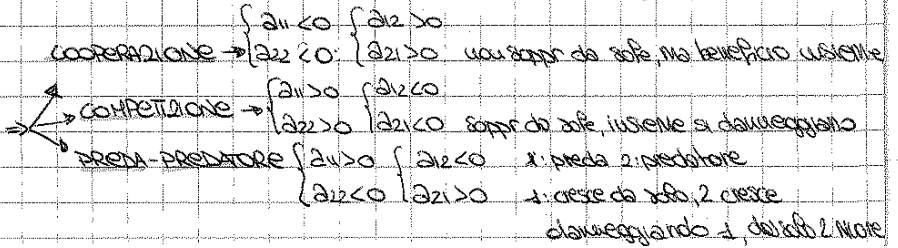 {a11<0 {a12>0
COOPERAZIONE → {a22<0; {a21>0 non soppr da sole, ma beneficio insieme
⇒ COMPETIZIONE → {a11>0 {a12<0
{a22>0 {a21<0 soppr da sole, insieme si danneggiano
PREDA-PREDATORE {a11>0 {a12<0 1: preda 2: predatore
{a22<0 {a21>0 1: cresce da solo, 2 cresce
danneggiando 1, da solo 2 muore